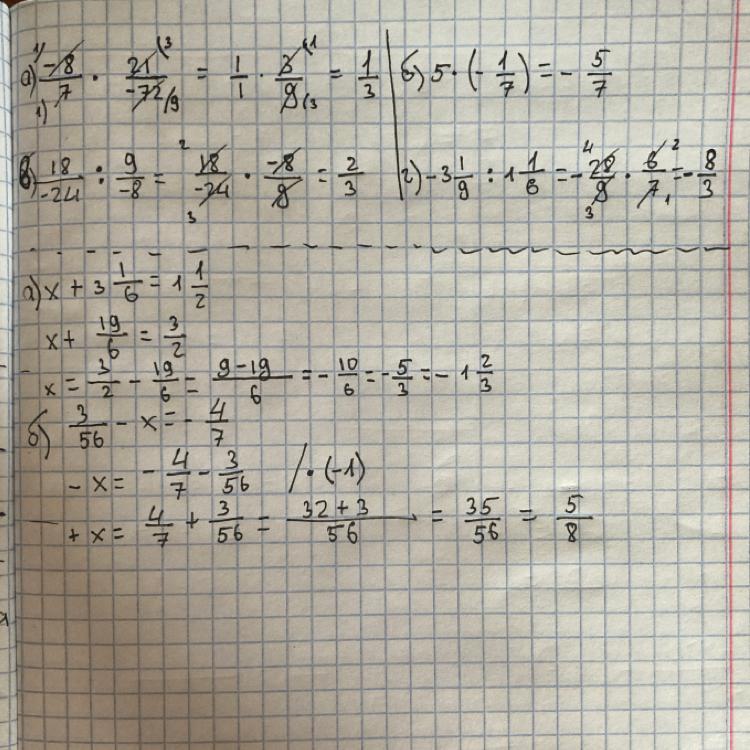 а) -8/7 · 21/-72 = 1/1 · 3/9 = 1/3
б) 5·(-1/7) = - 5/7
в) 18/-24 : 9/-8 = 18/-24 · -8/9 = 2/3
г) -3 1/9 : 1 1/6 = - 28/9 · 6/7 = - 8/3
а) x + 3 1/6 = 1 1/2
x + 19/6 = 3/2
x = 3/2 - 19/6 = 9-19/6 = - 10/6 = - 5/3 = - 1 2/3
б) 3/56 - x = - 4/7
- x = - 4/7 - 3/56 /· (-1)
+ x = 4/7 + 3/56 = 32+3/56 = 35/56 = 5/8